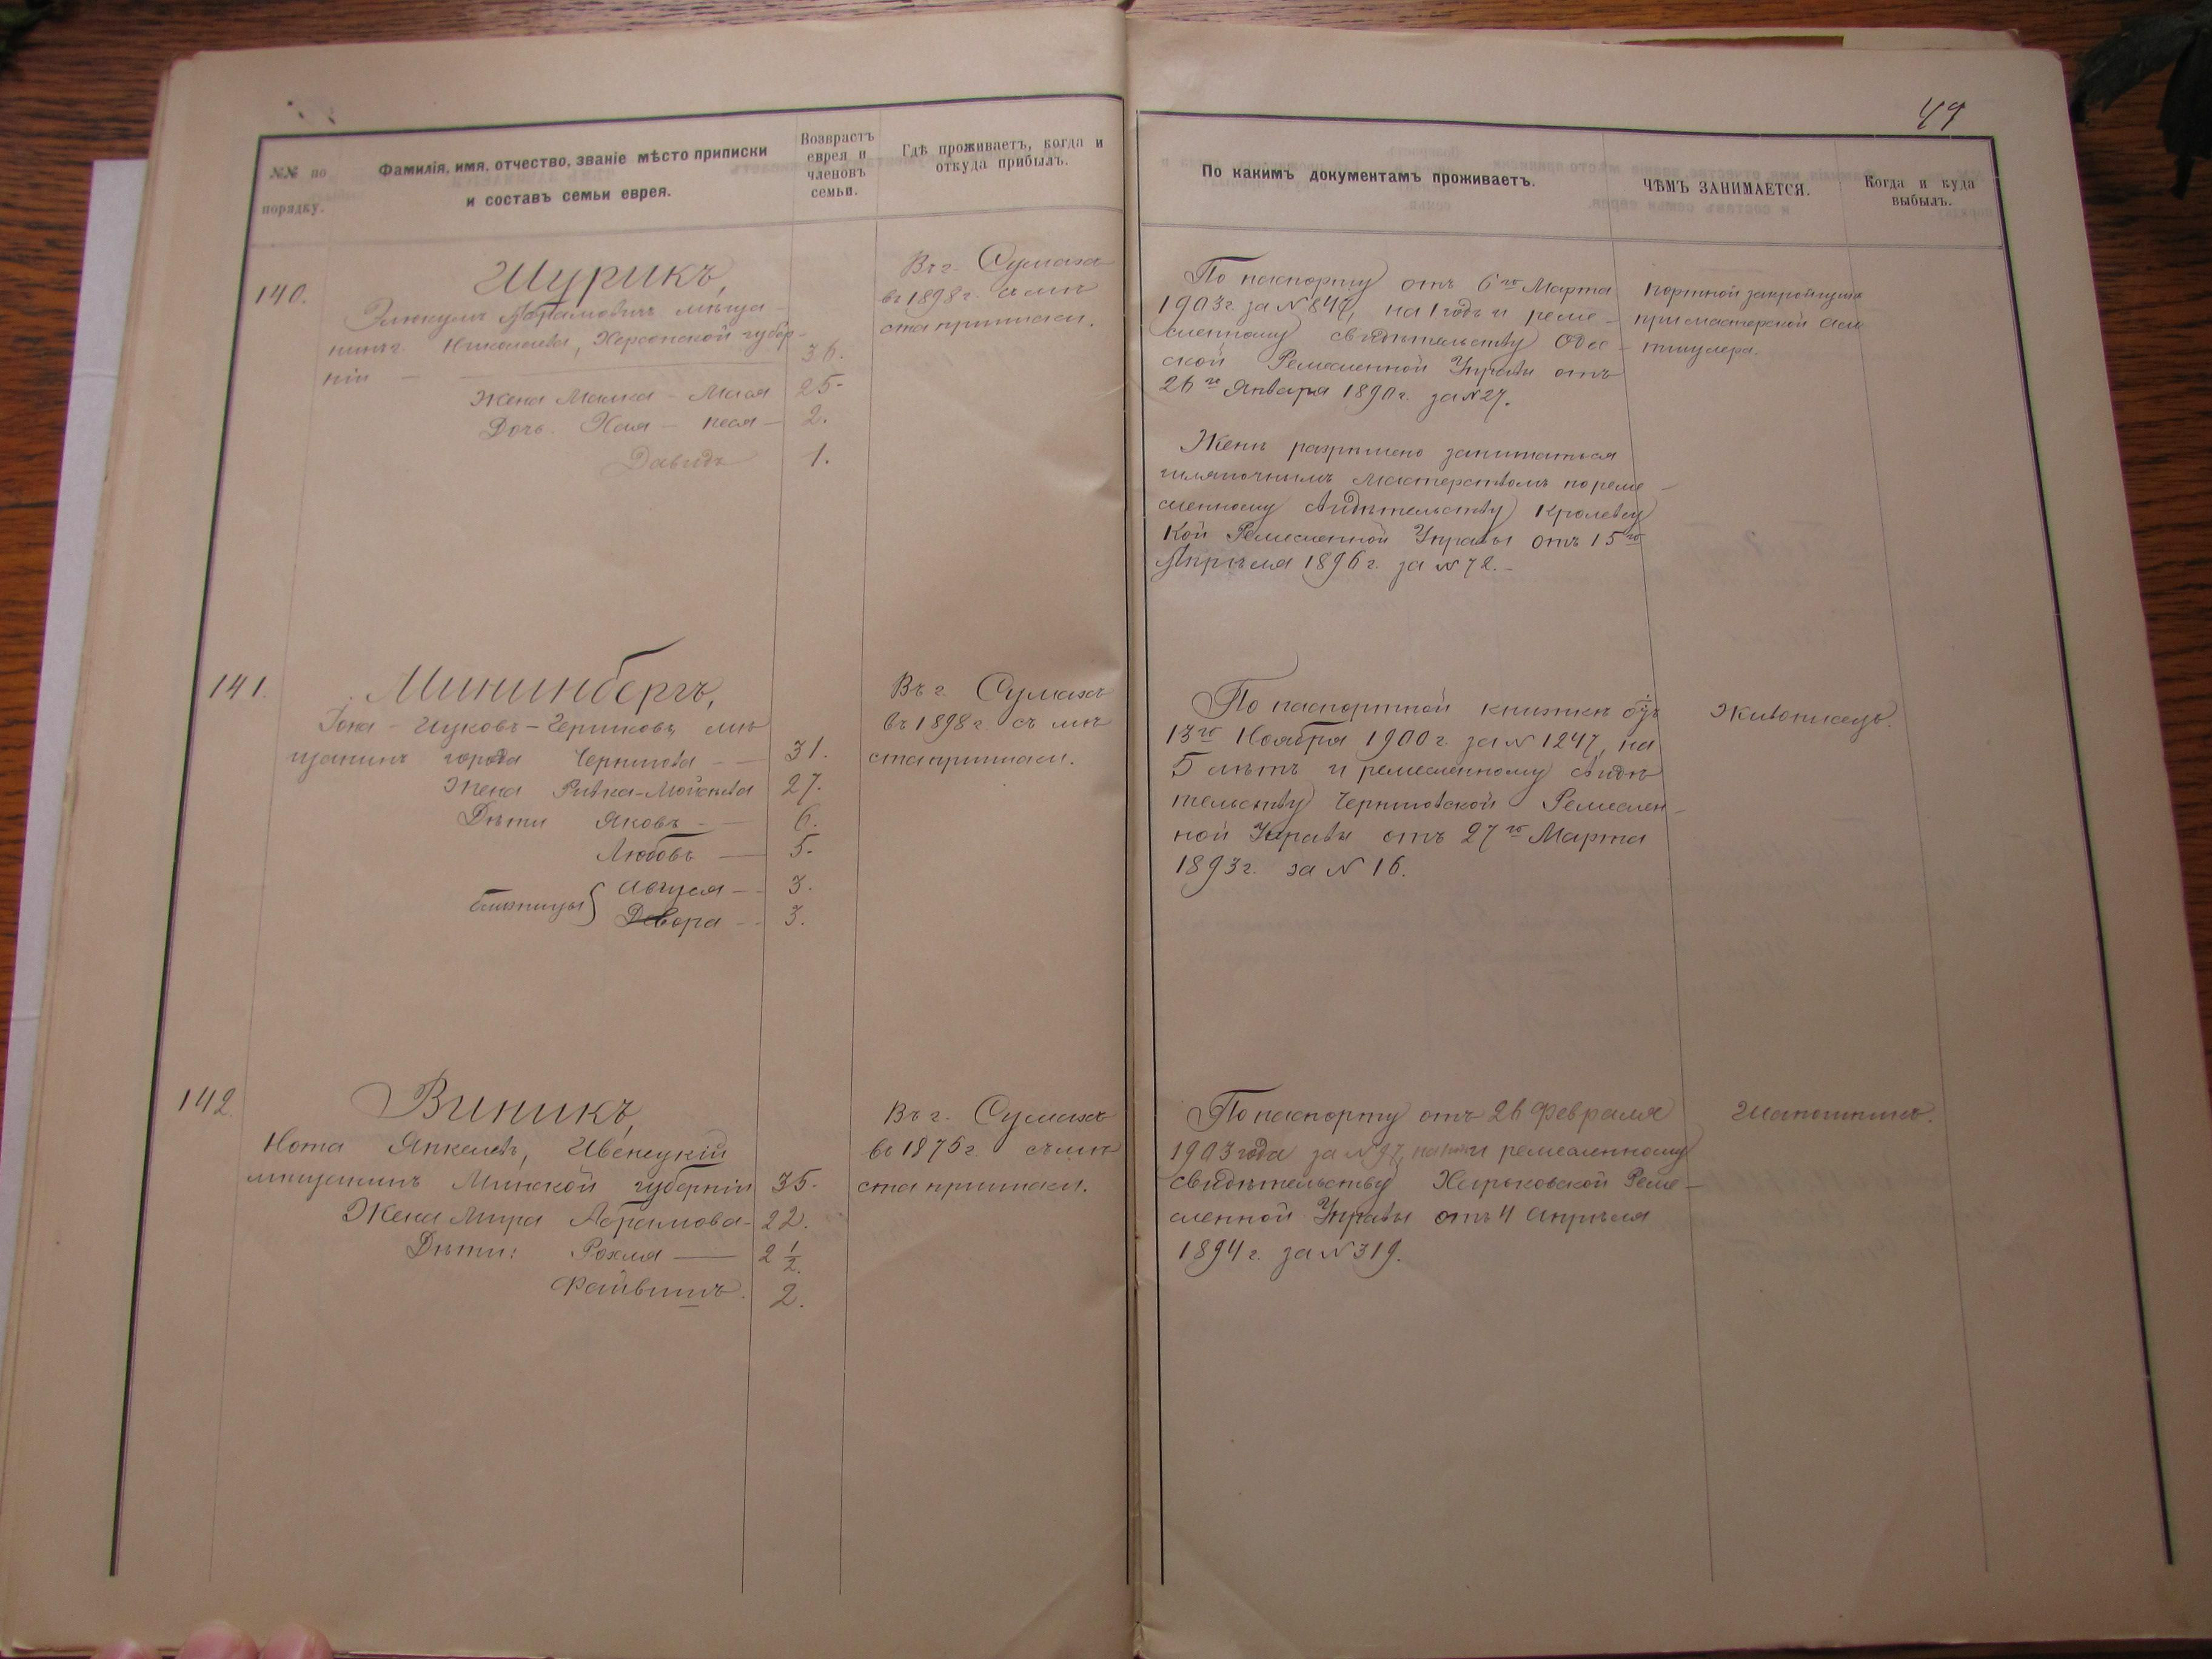 49
№№ по порядку.
Фамилія, имя, отчество, званіе мѣсто приписки
и составъ семьи еврея.
Возврастъ
еврея и
членовъ
семьи.
Гдѣ проживаетъ, когда и
откуда прибылъ.
По какимъ документамъ проживаетъ.
ЧѢМЪ ЗАНИМАЕТСЯ.
Когда и куда
выбылъ.
140.
Шурикъ,
Абрамовичъ мѣща-
нинъ г. Николаева, Херсонской губер-
ніи — 36.
Жена Малка - Мася 25-
Дочь. Хая - Песя - 2.
Давидъ 1.
Въ г. Сумахъ
въ 1898 г. съ мѣ
ста приписки.
По паспорту отъ 6го Марта
1903 г. за № 848, на 1 годъ и реме-
сленному свидѣтельству Одес-
ской Ремесленной Управы отъ
26го Января 1890 г. за № 27.
Женѣ разрѣшено заниматься
шляпочнымъ мастерствомъ по реме-
сленному свидѣтельству Кролевец
кой Ремесленной Управы отъ 15го
Апрѣля 1896 г. за № 72.-
портной закройщикъ
при мастерской
141.
Мининбергъ,
Іона - Ицковъ - Берковъ, мѣ
щанинъ города Чернигова - — 31.
Жена Ривка - Мойсѣева 27.
Дѣти Яковъ - — 6.
Любовь — 5.
близнецы } — 3.
Двора - - 3.
Въ г. Сумахъ
въ 1898 г. съ мѣ
ста приписки.
По паспортной книжкѣ отъ
13го Ноября 1900 г. за № 1247, на
5 лѣтъ и ремесленному свидѣ
тельству Черниговской Ремеслен-
ной Управы отъ 27го Марта
1893 г. за № 16.
Живописецъ.
142.
Виникъ,
Нота Янкелевъ, Ивенецкій
мѣщанинъ Минской губерніи 35.
Жена Мира Абрамова - 22.
Дѣти: Рохля — 2 1/2.
Файвишъ. 2.
Въ г. Сумахъ
въ 1875 г. съ мѣ
ста приписки.
По паспорту отъ 26 Февраля
1903 года за № 97, на и ремесленному
свидѣтельству Харьковской Реме-
сленной Управы отъ 4 Апрѣля
1894 г. за № 319.
Шапошникъ.